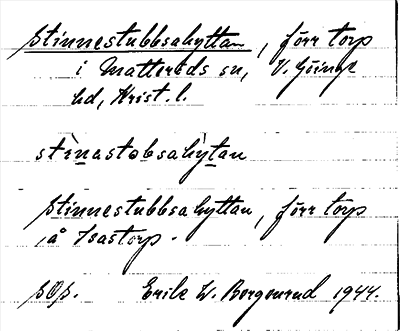 Stinnestubbsahyttan, förr torp
i Matteröds sn, V. Göinge
hd, Krist. l.
stìnastobsahỳtan
Stinnestubbsahyttan, förr torp
å Isastorp.
sOp. Erik W. Borgenrud 1944.